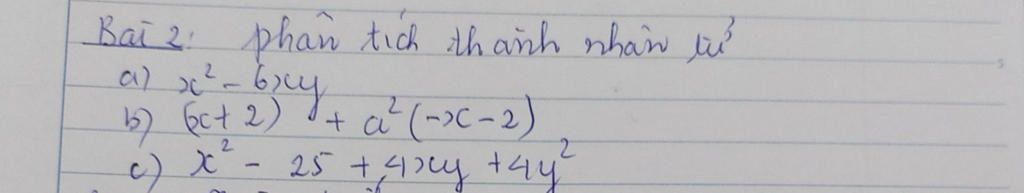 Bài 2: phân tích thành nhân tử
a) x² - 6xy
b) (x+2) + a²(-x-2)
c) x² - 25 + 4xy + 4y²